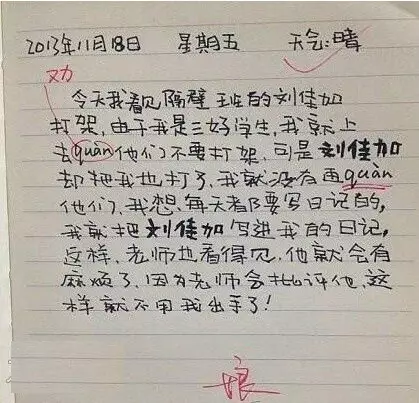 2013年11月18日 星期五 天气:晴
劝
今天我看见隔壁班的刘佳加
打架,由于我是三好学生,我就上
去quàn他们不要打架,可是刘佳加
却把我也打了,我就没有再quàn
他们,我想,每天都要写日记的,
我就把刘佳加写进我的日记,
这样,老师也看得见,他就会有
麻烦了,因为老师会批评他,这
样就不用我出手了!